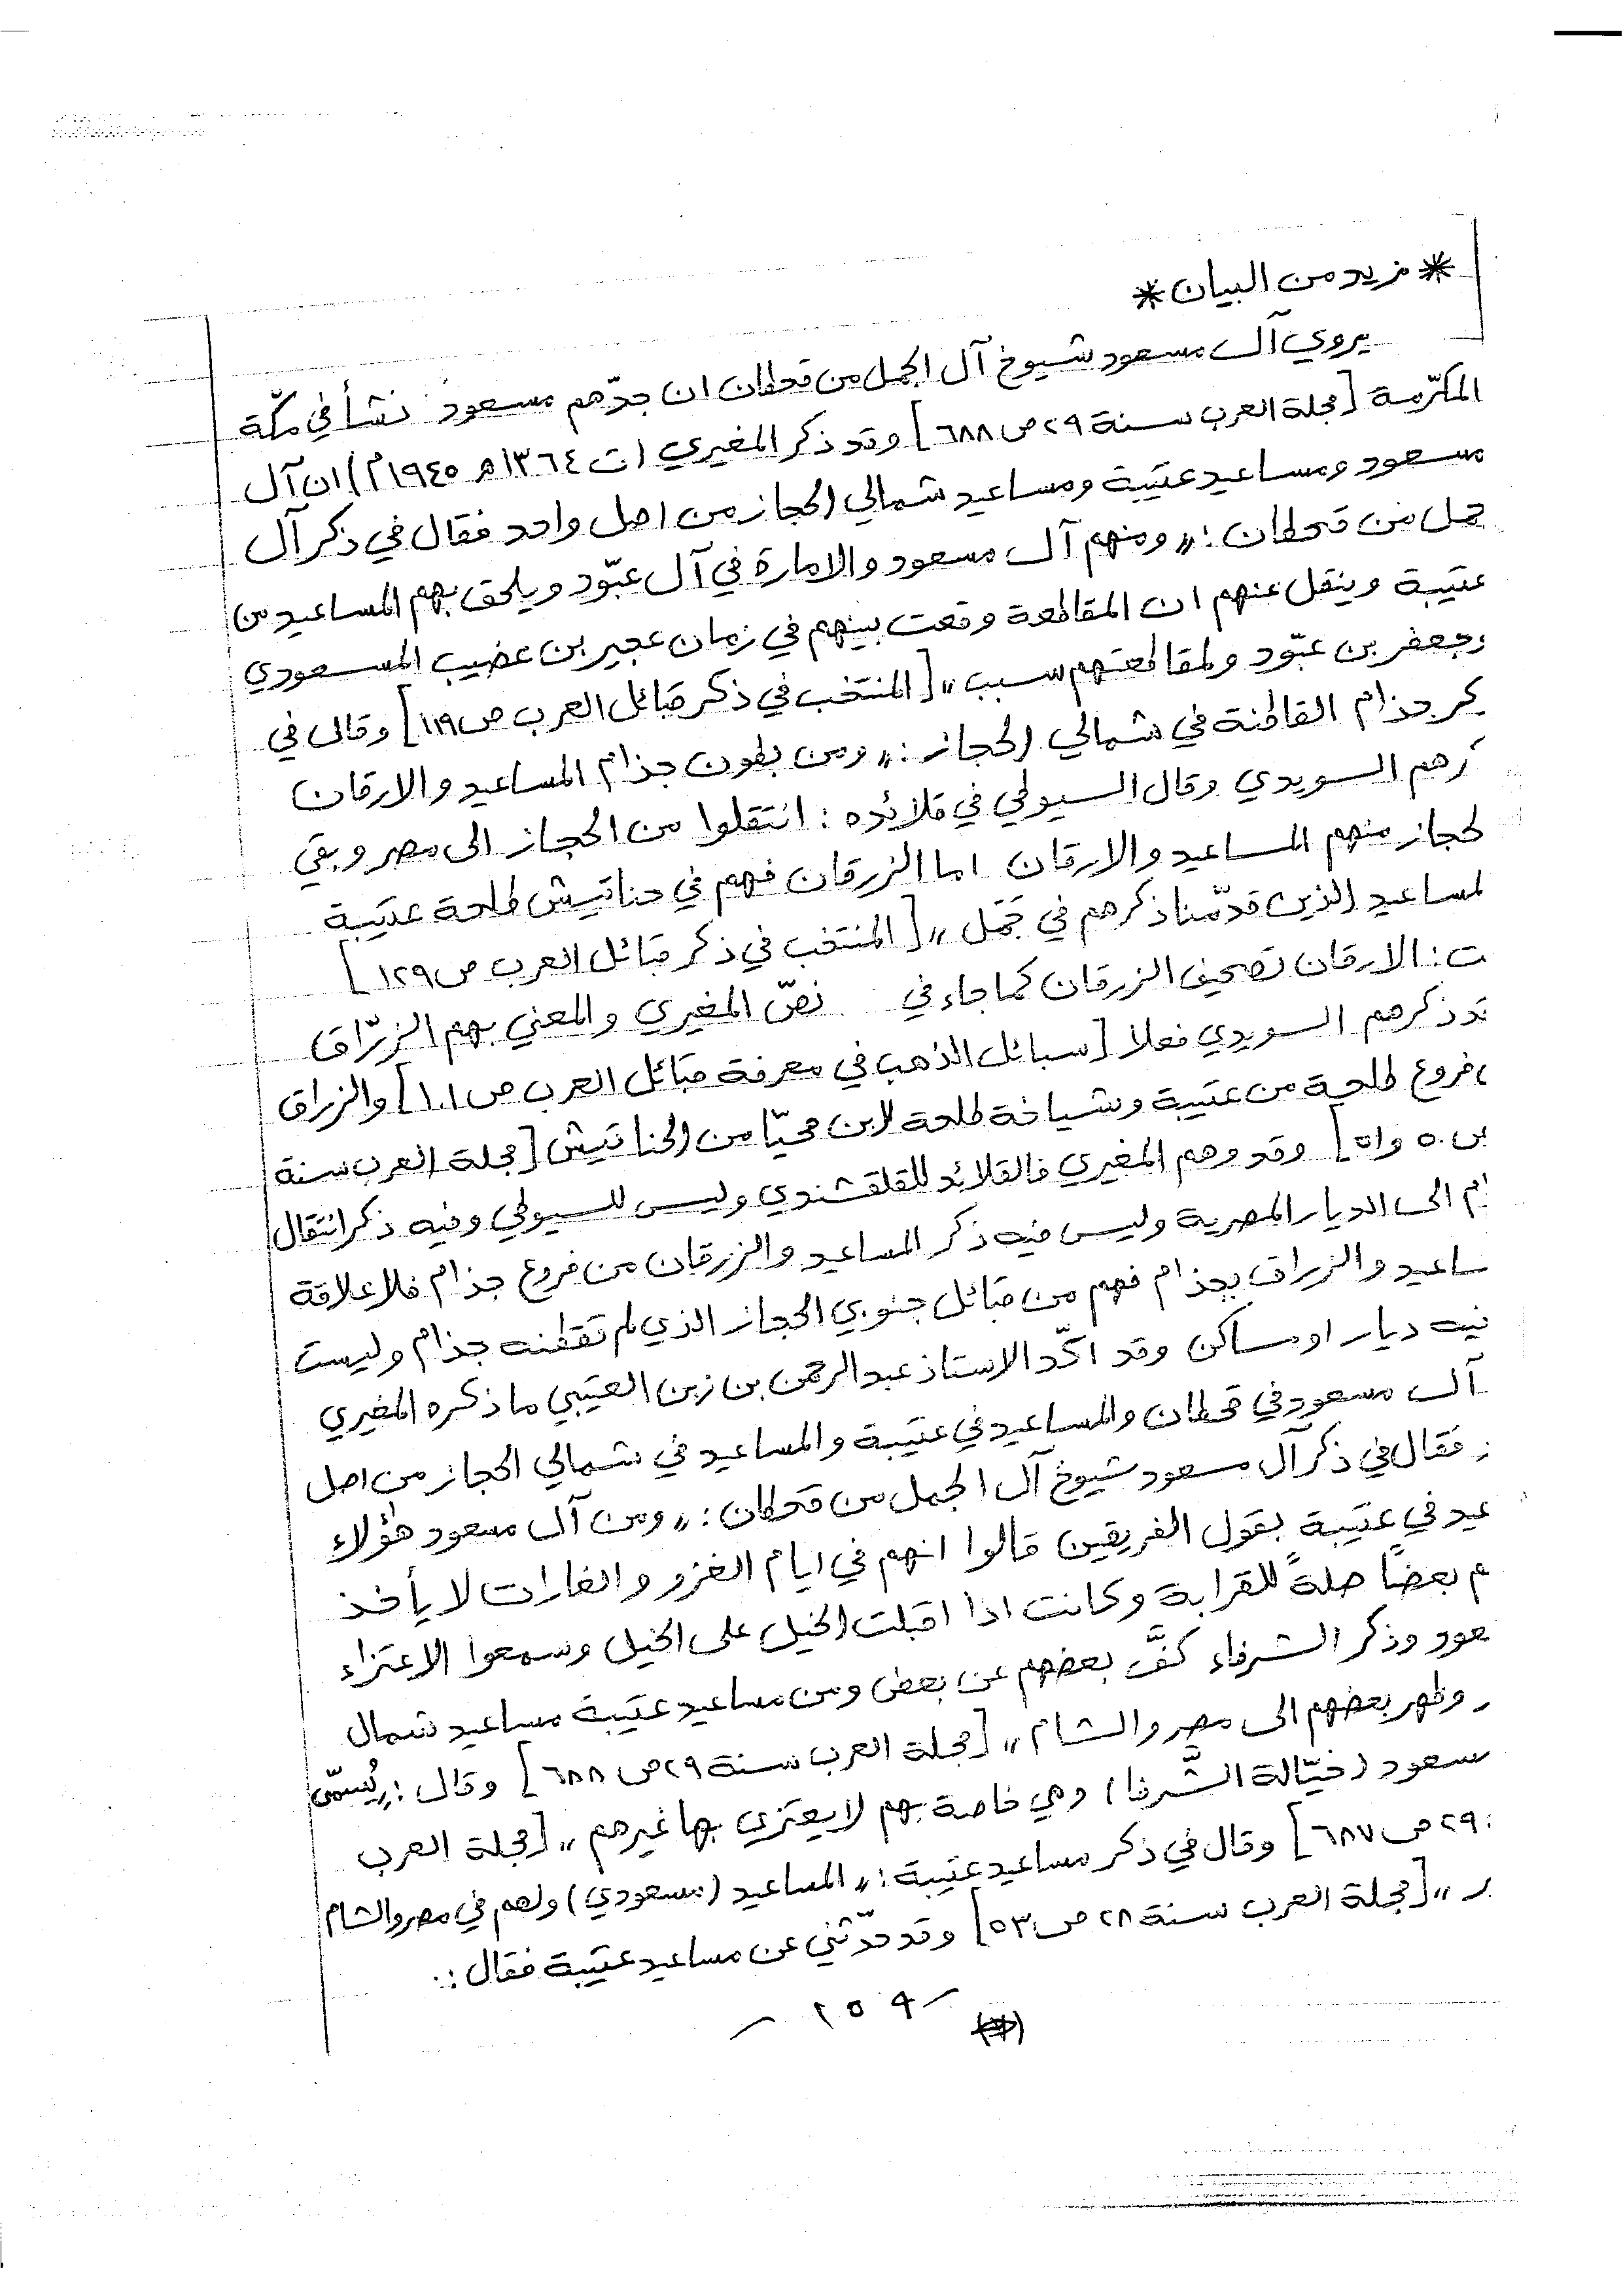 * مزيد من البيان *
يروي آل مسعود شيوخ آل الجمل من قحطان ان جدّهم مسعود نشأ في مكّة
المكرّمة [مجلة العرب سنة ٢٩ ص ٦٨٨] وقد ذكر المغيري (ت ١٣٦٤ هـ ١٩٤٥ م) ان آل
مسعود ومساعيد عتيبة ومساعيد شمالي الحجاز من اصل واحد فقال في ذكر آل
جمل من قحطان : " ومنهم آل مسعود والامارة في آل عبّود ويلحق بهم المساعيد من
عتيبة وينقل عنهم ان المقاطعة وقعت بينهم في زمان عجير بن عضيب المسعودي
وجعفر بن عبّود ولمقاطعتهم سبب " [المنتخب في ذكر قبائل العرب ص ١١٩] وقال في
كر جذام القاطنة في شمالي الحجاز : " ومن بطون جذام المساعيد والارقان
رهم السويدي وقال السيوطي في قلائده : انتقلوا من الحجاز الى مصر وبقي
لحجاز منهم المساعيد والارقان اما الزرقان فهم في حناتيش طلحة عتيبة
لمساعيد الذين قدّمنا ذكرهم في جَمَل " [المنتخب في ذكر قبائل العرب ص ١٢٩]
ت : الارقان تصحيف الزرقان كما جاء في نصّ المغيري والمعني بهم الزرّاق
قد ذكرهم السويدي فعلا [سبائك الذهب في معرفة قبائل العرب ص ١٠١] والزراق
ن فروع طلحة من عتيبة وشياخة طلحة لابن محيّا من الحناتيش [مجلة العرب سنة
ص ٥٠ و ٥١] وقد وهم المغيري فالقلائد للقلقشندي وليس للسيوطي وفيه ذكر انتقال
ام الى الديار المصرية وليس فيه ذكر المساعيد والزرقان من فروع جذام فلا علاقة
ساعيد والزراق بجذام فهم من قبائل جنوبي الحجاز الذي لم تقطنه جذام وليست
فيه ديار او مساكن وقد اكّد الاستاذ عبدالرحمن بن زبن العتيبي ما ذكره المغيري
آل مسعود في قحطان والمساعيد في عتيبة والمساعيد في شمالي الحجاز من اصل
فقال في ذكر آل مسعود شيوخ آل الجمل من قحطان : " ومن آل مسعود هؤلاء
عيد في عتيبة بقول الفريقين قالوا انهم في ايام الغزو والغارات لا يأخذ
م بعضاً صلةً للقرابة وكانت اذا اقبلت الخيل على الخيل وسمعوا الاعتزاء
عود وذكر الشرفاء كفَّ بعضهم عن بعض ومن مساعيد عتيبة مساعيد شمال
ر وظهر بعضهم الى مصر والشام " [مجلة العرب سنة ٢٩ ص ٦٨٨] وقال : " يُسمّى
سعود (خيّالة الشَّرفا) وهي خاصة بهم لا يعتزي بها غيرهم " [مجلة العرب
٢٩ ص ٦٨٧] وقال في ذكر مساعيد عتيبة : " المساعيد (مسعودي) ولهم في مصر والشام
ر " [مجلة العرب سنة ٢٨ ص ٥٣] وقد حدّثني عن مساعيد عتيبة فقال :
- ٢٥٩ -